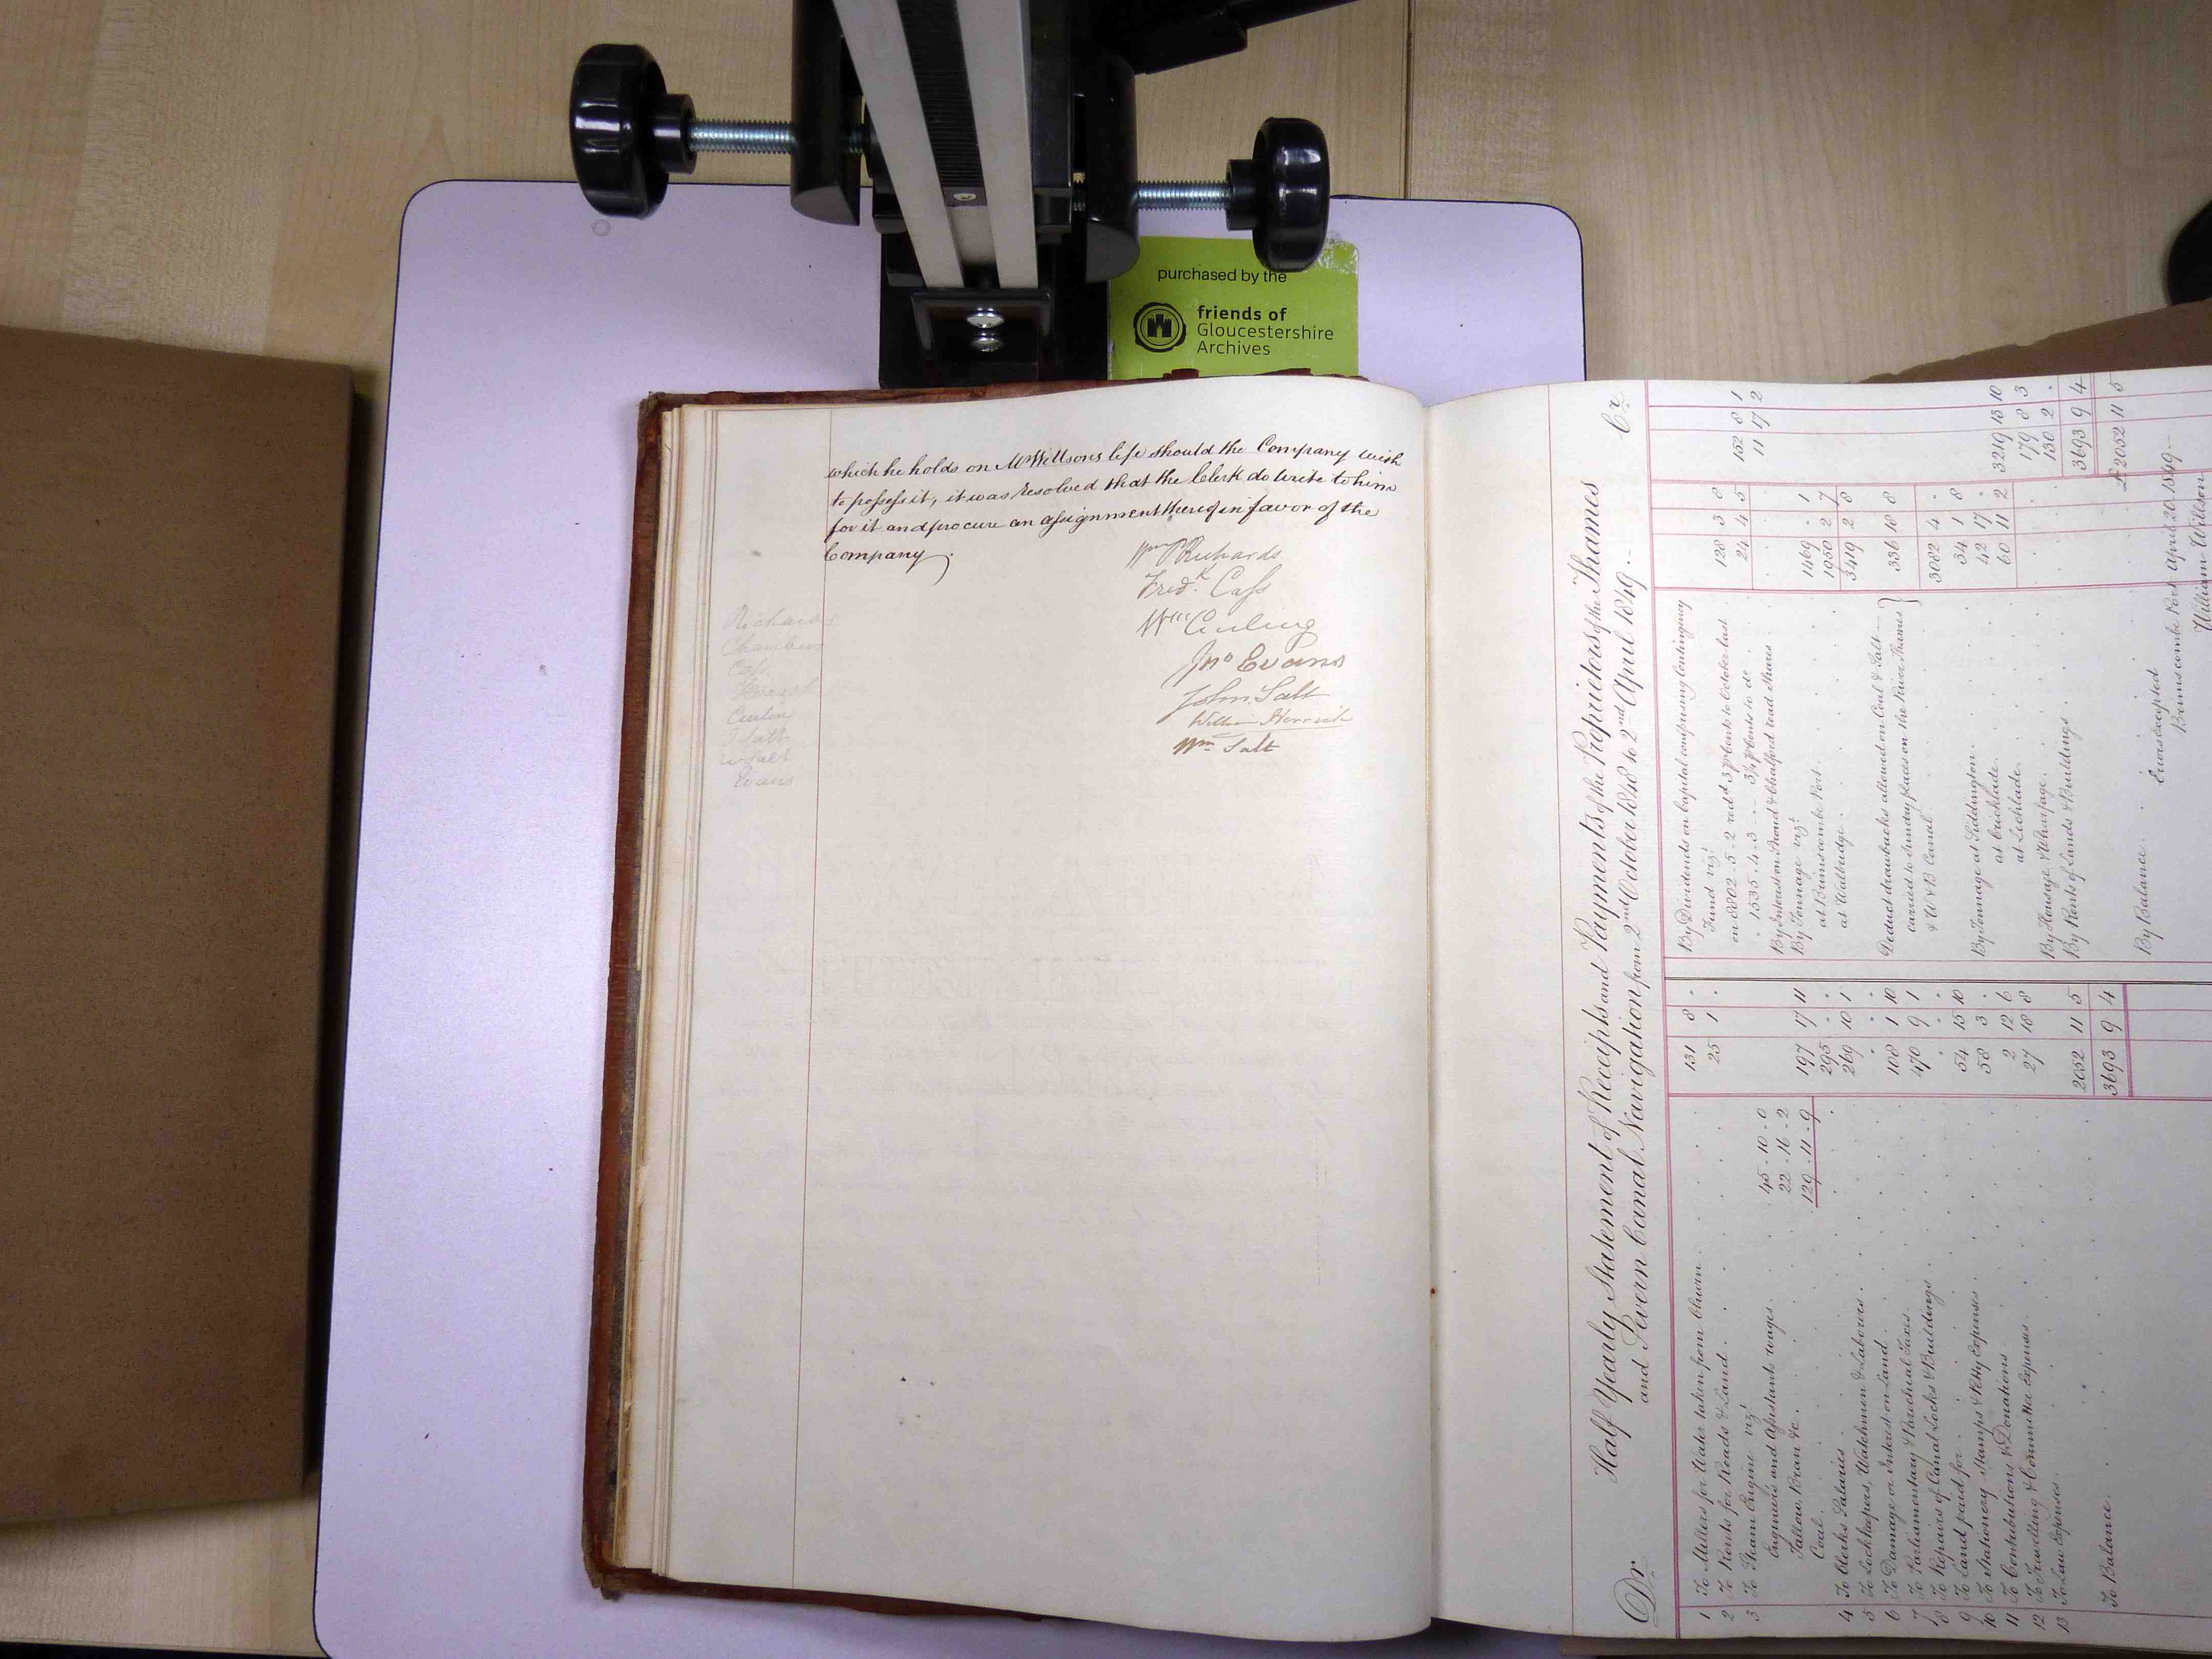 purchased by the
friends of
Gloucestershire
Archives
which he holds on Mr Wilsons life should the Company wish
to possess it, it was resolved that the Clerk do write to him
for it and procure an assignment thereof in favor of the
Company.
Wm Richards
Fredk. Cass
Wm Curling
Jno Evans
John Salt
William Herrick
Wm Salt
Richards
Chambers
Cass
Curling
J Salt
W Salt
Evans
Dr. Half Yearly Statement of Receipts and Payments of the Proprietors of the Thames Cr
and Severn Canal Navigation from 2nd October 1848 to 2nd April 1849
1 To Millers for Water taken from Churn 131 8 .
2 To Rents for Roads & Land 25 1 .
3 To Steam Engine vizt
Engineers and Assistants wages 45 . 10 . 0
Tallow, Bran &c. 22 . 16 . 2
Coal 129 . 11 . 9 197 17 11
4 To Clerks Salaries 295 . .
5 To Lockkeepers, Watchmen & Laborers 269 10 1
6 To Damage or Interest on Land . . .
7 To Parliamentary & Parochial Taxes 108 1 10
8 To Repairs of Canal Locks & Buildings 470 9 1
9 To Land paid for . . .
10 To Stationery Stamps & Petty Expenses 54 15 10
11 To Contributions & Donations 58 3 .
12 To Travelling & Committee Expenses 2 12 6
13 To Law Expenses 27 18 8
To Balance 2052 11 5
3693 9 4
By Dividends on Capital comprising Contingency
Fund vizt
on 8802 . 5 . 2 red 3 p Cents to October last 128 3 8
1535 . 4 . 3 3¼ p Cents to do 24 4 5 152 8 1
By Interest on Stroud & Chalford road shares 11 17 2
By Tonnage vizt
at Brimscombe Port 1469 . 1
at Wallbridge 1950 2 7
3419 2 8
Deduct drawbacks allowed on Coal & Salt
carried to sundry places on the River Thames
& W & B Canal 336 18 8
3082 4 .
By Tonnage at Siddington 34 1 8
at Cricklade 42 17 .
at Lechlade 60 11 2 3219 13 10
By Houseage & Wharfage 179 8 3
By Rents of Lands & Buildings 130 2 .
3693 9 4
By Balance £2052 11 5
Errors excepted
Brimscombe Port April 20 1849
William Wilson